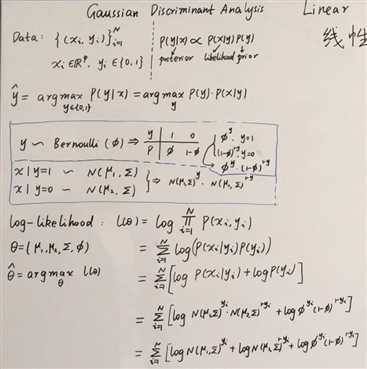 Gaussian Discriminant Analysis Linear
线性
Data: {(xi, yi)}_{i=1}^N
P(y|x) ∝ P(x|y) P(y)
posterior likelihood prior
xi ∈ ℝ^p, yi ∈ {0,1}
ŷ = argmax_{y∈{0,1}} P(y|x) = argmax_y P(y)·P(x|y)
y ~ Bernoulli (φ) ⇒ y 1 0
P φ 1-φ
φ^y, y=1
(1-φ)^{1-y}, y=0
φ^y (1-φ)^{1-y}
x|y=1 ~ N(μ1, Σ)
x|y=0 ~ N(μ2, Σ)
⇒ N(μ1,Σ)^y · N(μ2,Σ)^{1-y}
log-likelihood: l(θ) = log ∏_{i=1}^N P(xi, yi)
θ = (μ1, μ2, Σ, φ) = Σ_{i=1}^N log(P(xi|yi)P(yi))
θ̂ = argmax_θ l(θ) = Σ_{i=1}^N [log P(xi|yi) + log P(yi)]
= Σ_{i=1}^N [log N(μ1,Σ)^{yi} · N(μ2,Σ)^{1-yi} + log φ^{yi}(1-φ)^{1-yi}]
= Σ_{i=1}^N [log N(μ1,Σ)^{yi} + log N(μ2,Σ)^{1-yi} + log φ^{yi}(1-φ)^{1-yi}]